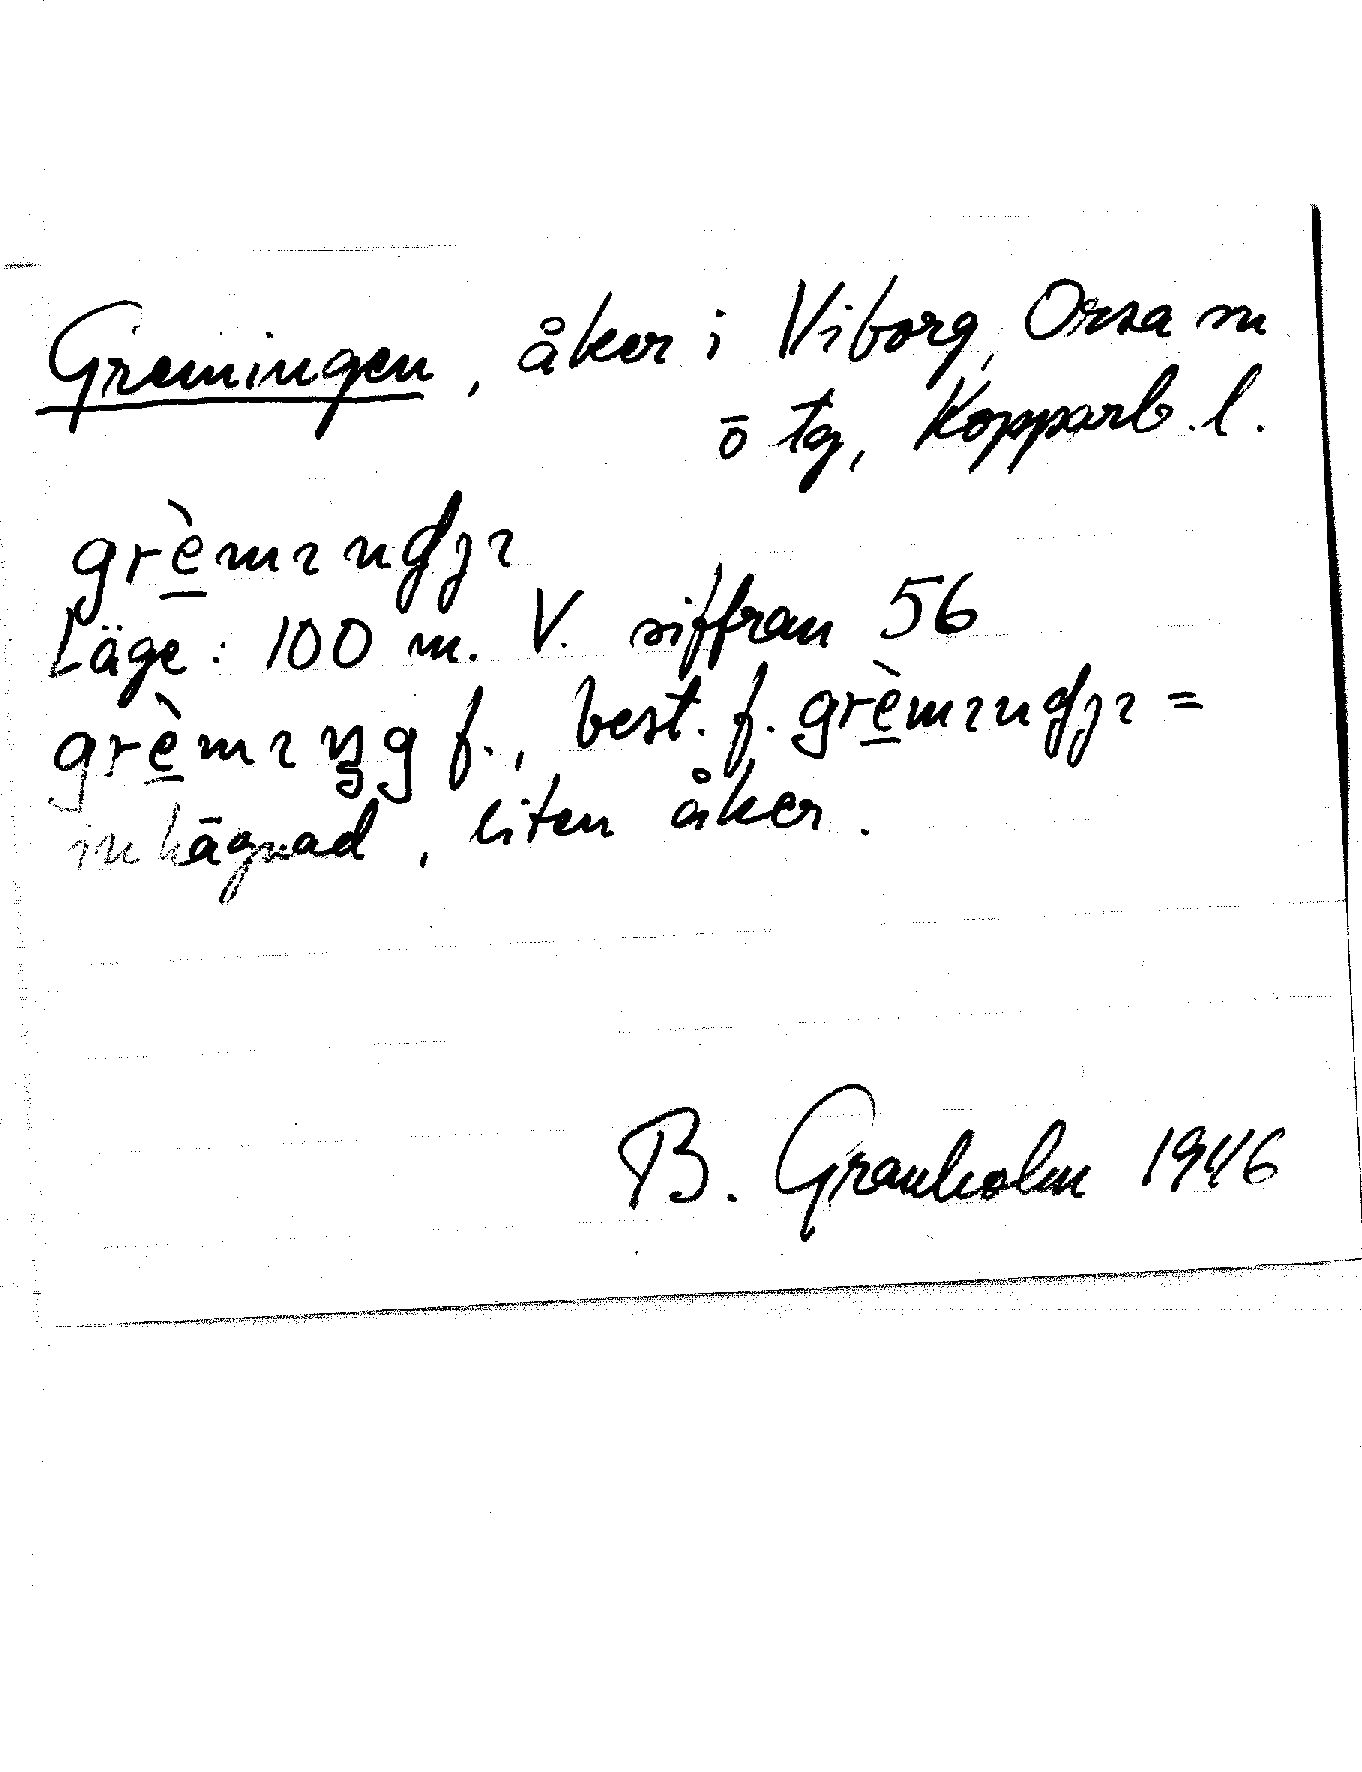 Gremingen, åker i Viborg, Orsa sn
ö tg, Kopparb. l.
grèmındȷı
Läge: 100 m. V. siffran 56
grèmıŋg f., best. f. grèmındȷı =
inhägnad, liten åker.
B. Granholm 1946